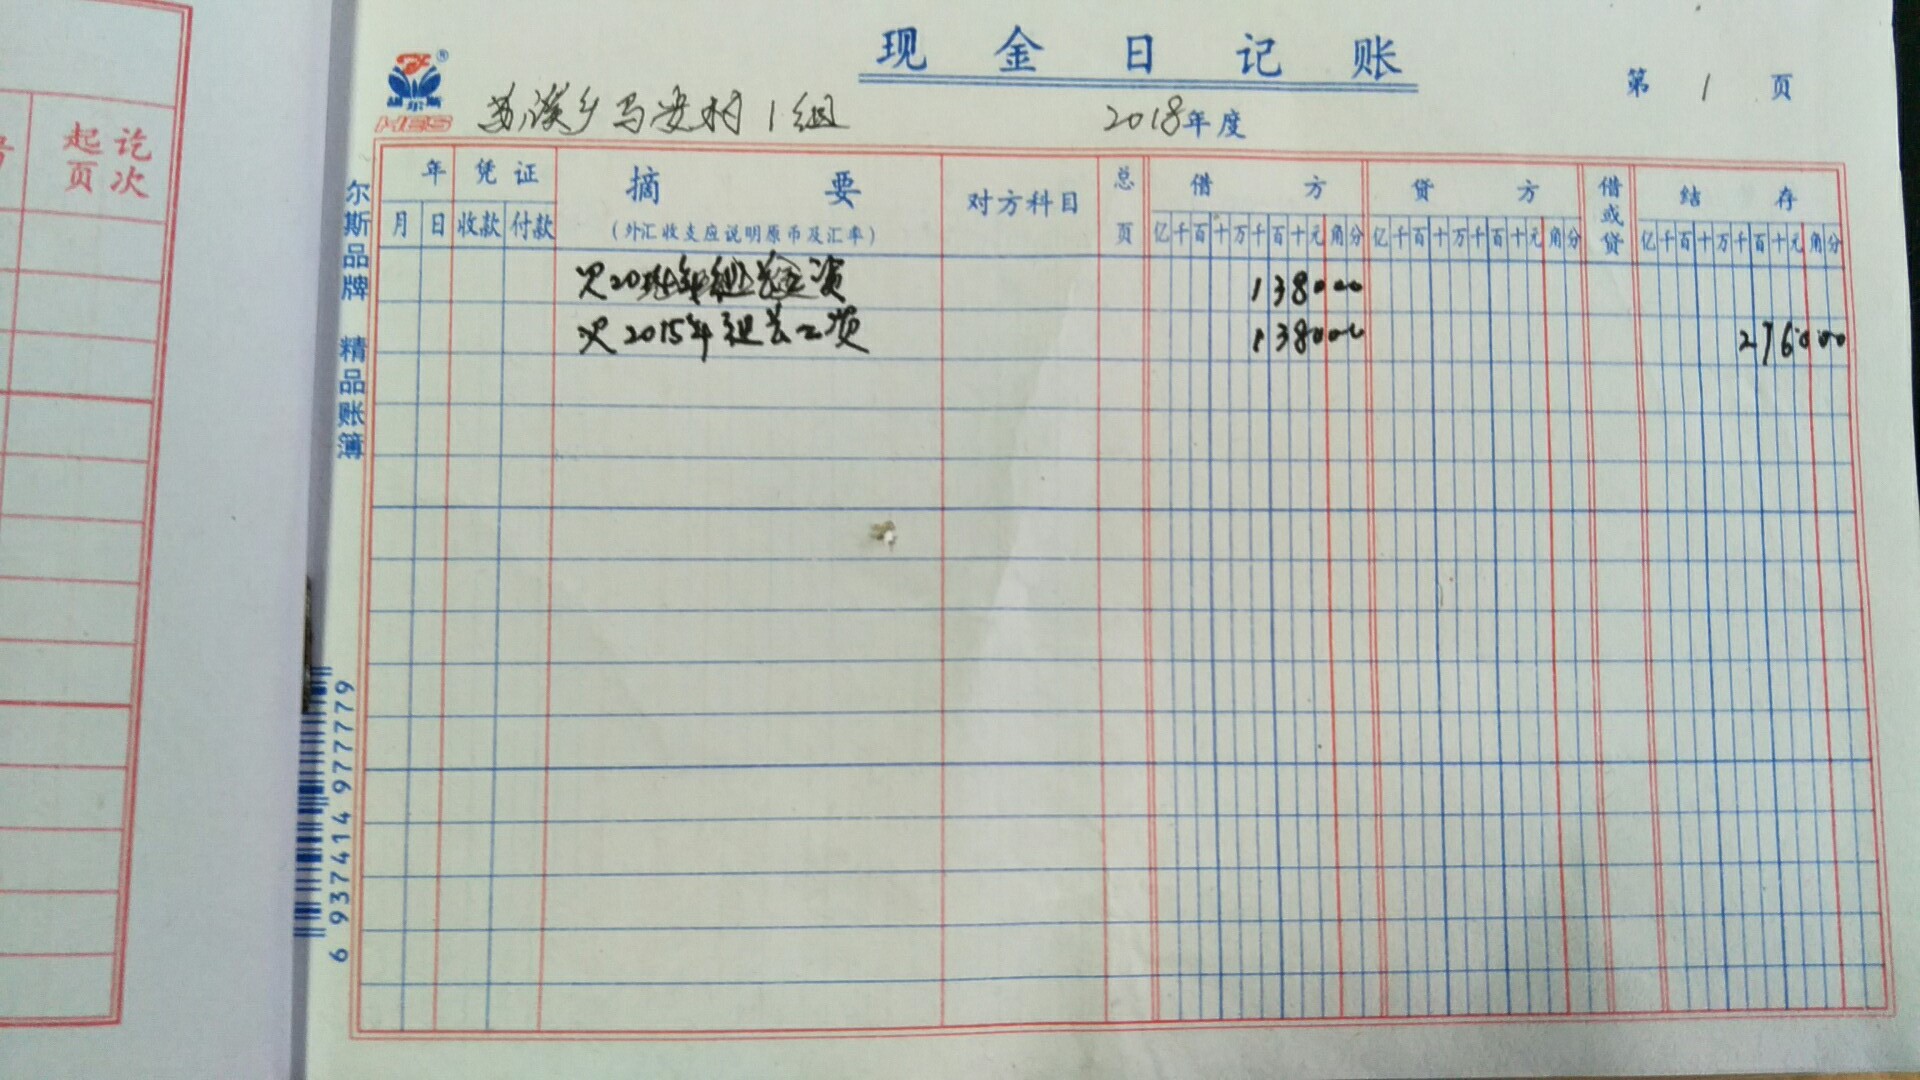 现金日记账
苏溪乡马安村1组
2018年度
第1页
起讫
页次
尔斯品牌 精品账簿
HES
年 凭证 摘要 对方科目 总页 借方 贷方 借或贷 结存
月 日 收款 付款 (外汇收支应说明原币及汇率) 亿千百十万千百十元角分 亿千百十万千百十元角分 亿千百十万千百十元角分
欠20 年组长工资 138000
欠2015年组长工资 138000 276000
6 937414 977779